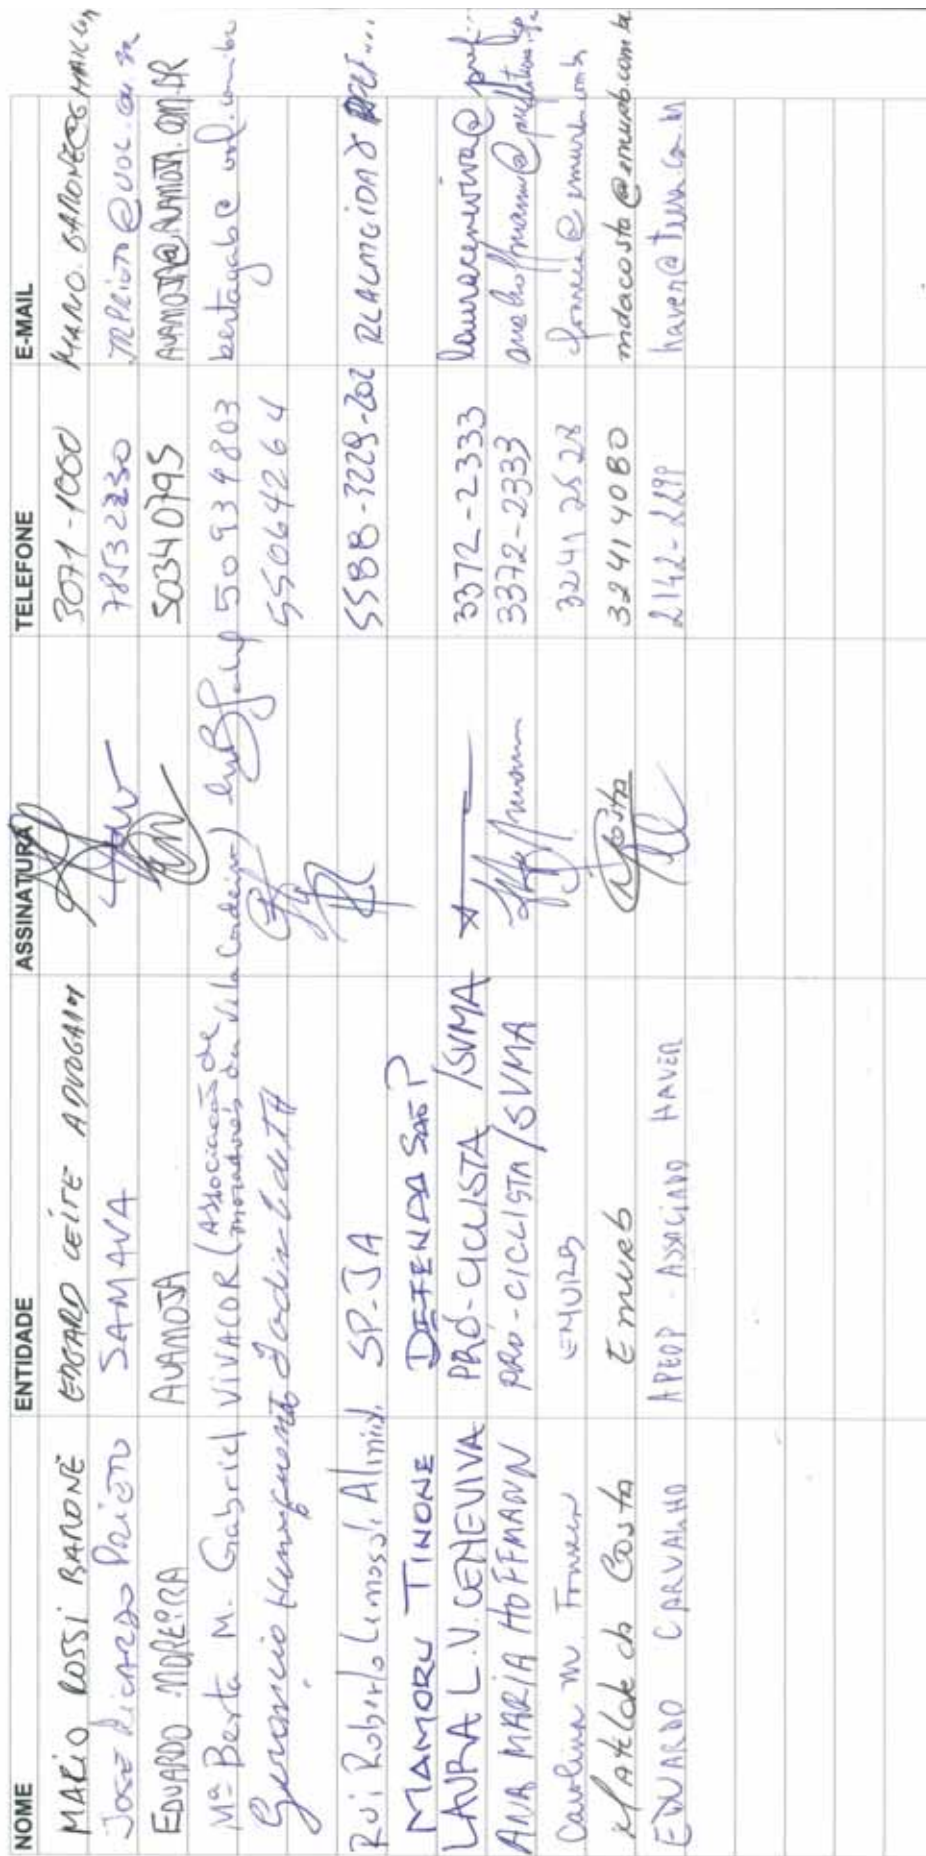 NOME ENTIDADE ASSINATURA TELEFONE E-MAIL
MARIO ROSSI BARONE EDGARD LEITE ADVOGADOS 3071-1000 MARIO.BARONE@GMAIL.COM
JOSÉ RICARDO PRIETO SAMAVA 78532230 JRPRIETO@UOL.COM.BR
EDUARDO MOREIRA AVAMOJA 50340795 AVAMOJA@AVAMOJA.COM.BR
Mª Berta M. Gabriel VIVACOR (Associação de moradores da Vila Cordeiro) 50934803 bertagab@uol.com.br
Jardim Edith 55064264
Rui Roberto Lemos de Almeid. SP-JA 5588-3229-202
MAMORU TINONE DEFENDA São P
LAURA L.V. CENEVIVA PRÓ-CICLISTA /SVMA 3372-2333 lauraceneviva@pref...
ANA MARIA HOFFMANN PRÓ-CICLISTA/SVMA 3372-2333
Carolina M EMURB 3241 2528
Matilde da Costa Emurb 32414080 mdacosta@emurb.com.br
EDUARDO CARVALHO APEOP-ASSOCIADO HAVER 2142-2299 haver@terra.com.br